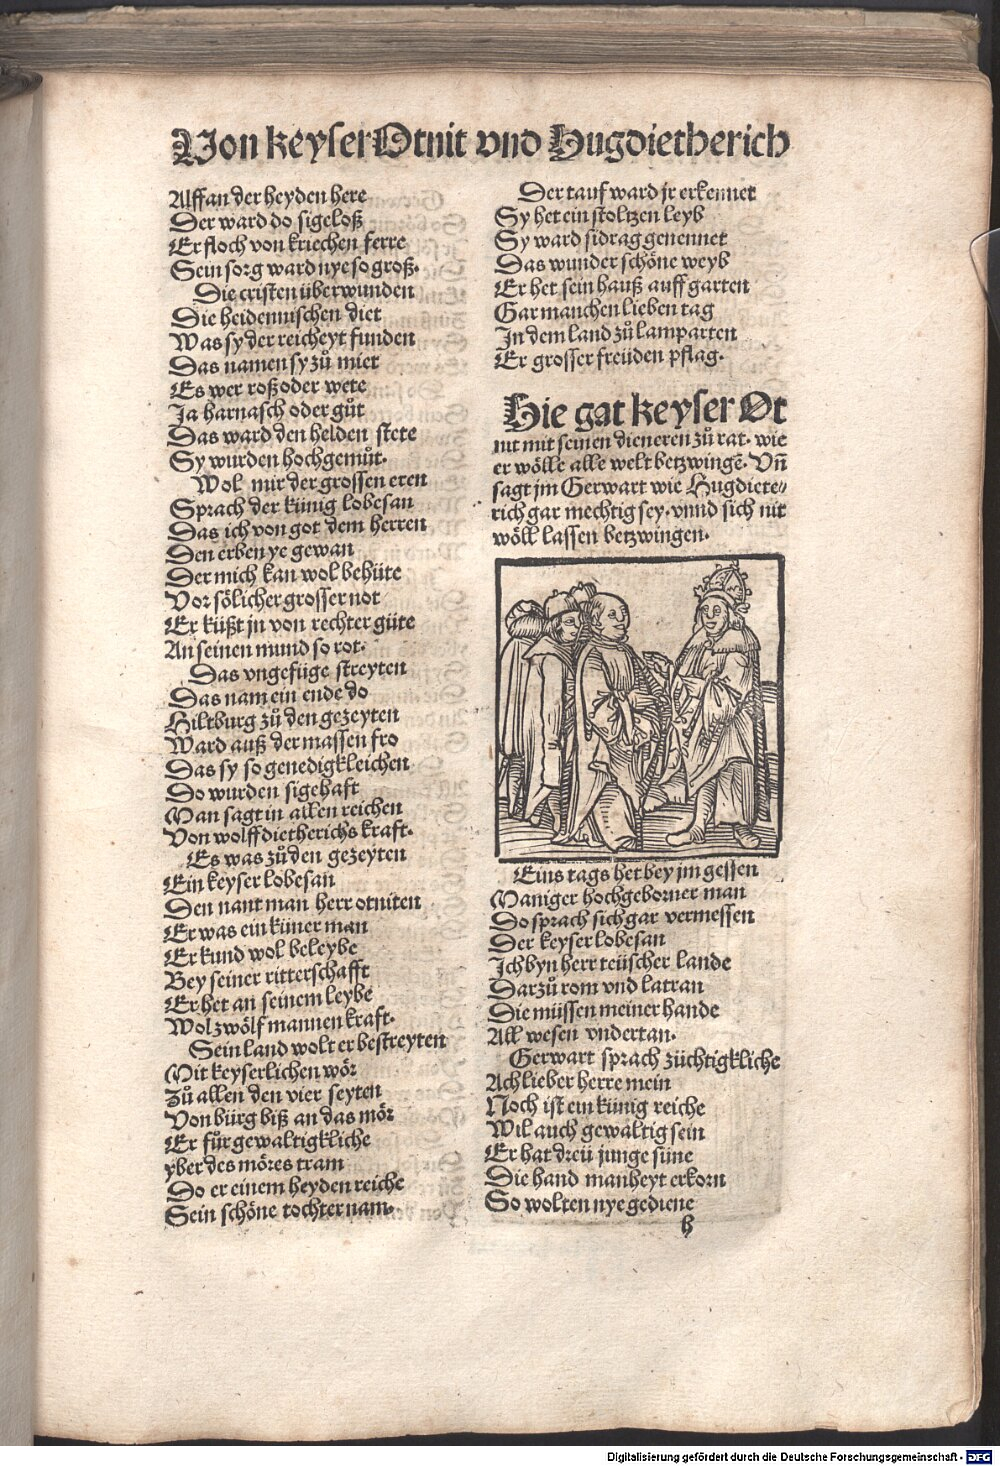 Von keyser Otnit vnd Hugdietherich
Alffan der heyden here
Der ward do sigeloß
Er floch von kriechen ferre
Sein sorg ward nye so groß.
Die cristen überwunden
Die heidennischen diet
Was sy der reicheyt funden
Das namen sy zů mier
Es wer roß oder wete
Ja harnasch oder gůt
Das ward den helden stete
Sy wurden hochgemůt.
Wol mir der grossen eren
Sprach der künig lobesan
Das ich von got dem herren
Den erben ye gewan
Der mich kan wol behüte
Vor sölicher grosser not
Er küßt jn von rechter güte
An seinen mund so rot.
Das vngefüge streyten
Das nam ein ende do
Hiltburg zů den gezeyten
Ward auß der massen fro
Das sy so genedigkleichen
Do wurden sigehaft
Man sagt in allen reichen
Von wolffdietherichs kraft.
Es was zů den gezeyten
Ein keyser lobesan
Den nant man herr otniten
Er was ein küner man
Er kund wol beleybe
Bey seiner ritterschafft
Er het an seinem leybe
Wol zwölf mannen kraft.
Sein land wolt er bestreyten
Mit keyserlichen wör
Zů allen den vier seyten
Von bürg biß an das mör
Er fůr gewaltigkliche
yber des möres tram
Do er einem heyden reiche
Sein schöne tochter nam.
Der tauf ward jr erkennet
Sy het ein stoltzen leyb
Sy ward sidrag genennet
Das wunder schöne weyb
Er het sein hauß auff garten
Gar manchen lieben tag
In dem land zů lamparten
Er grosser freüden pflag.
Hie gat keyser Ot
nit mit seinen dieneren zů rat. wie
er wölle alle welt betzwingē. Vn̄
sagt jm Gerwart wie Hugdiete⸗
rich gar mechtig sey. vnnd sich nit
wöll lassen betzwingen.
Eins tags het bey jm gessen
Maniger hochgeborner man
Do sprach sich gar vermessen
Der keyser lobesan
Ich byn herr teüscher lande
Darzů rom vnd latran
Die müssen meiner hande
All wesen vndertan.
Gerwart sprach züchtigkliche
Ach lieber herre mein
Noch ist ein künig reiche
Wil auch gewaltig sein
Er hat dreü junge süne
Die hand manheyt erkorn
So wolten nye gediene
h
Digitalisierung gefördert durch die Deutsche Forschungsgemeinschaft - DFG